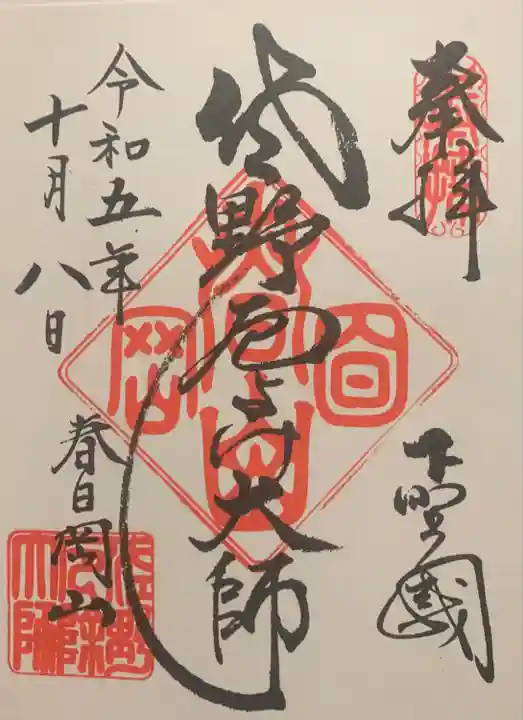 奉拝
下野國
佐野厄よけ大師
令和五年
十月八日
春日岡山